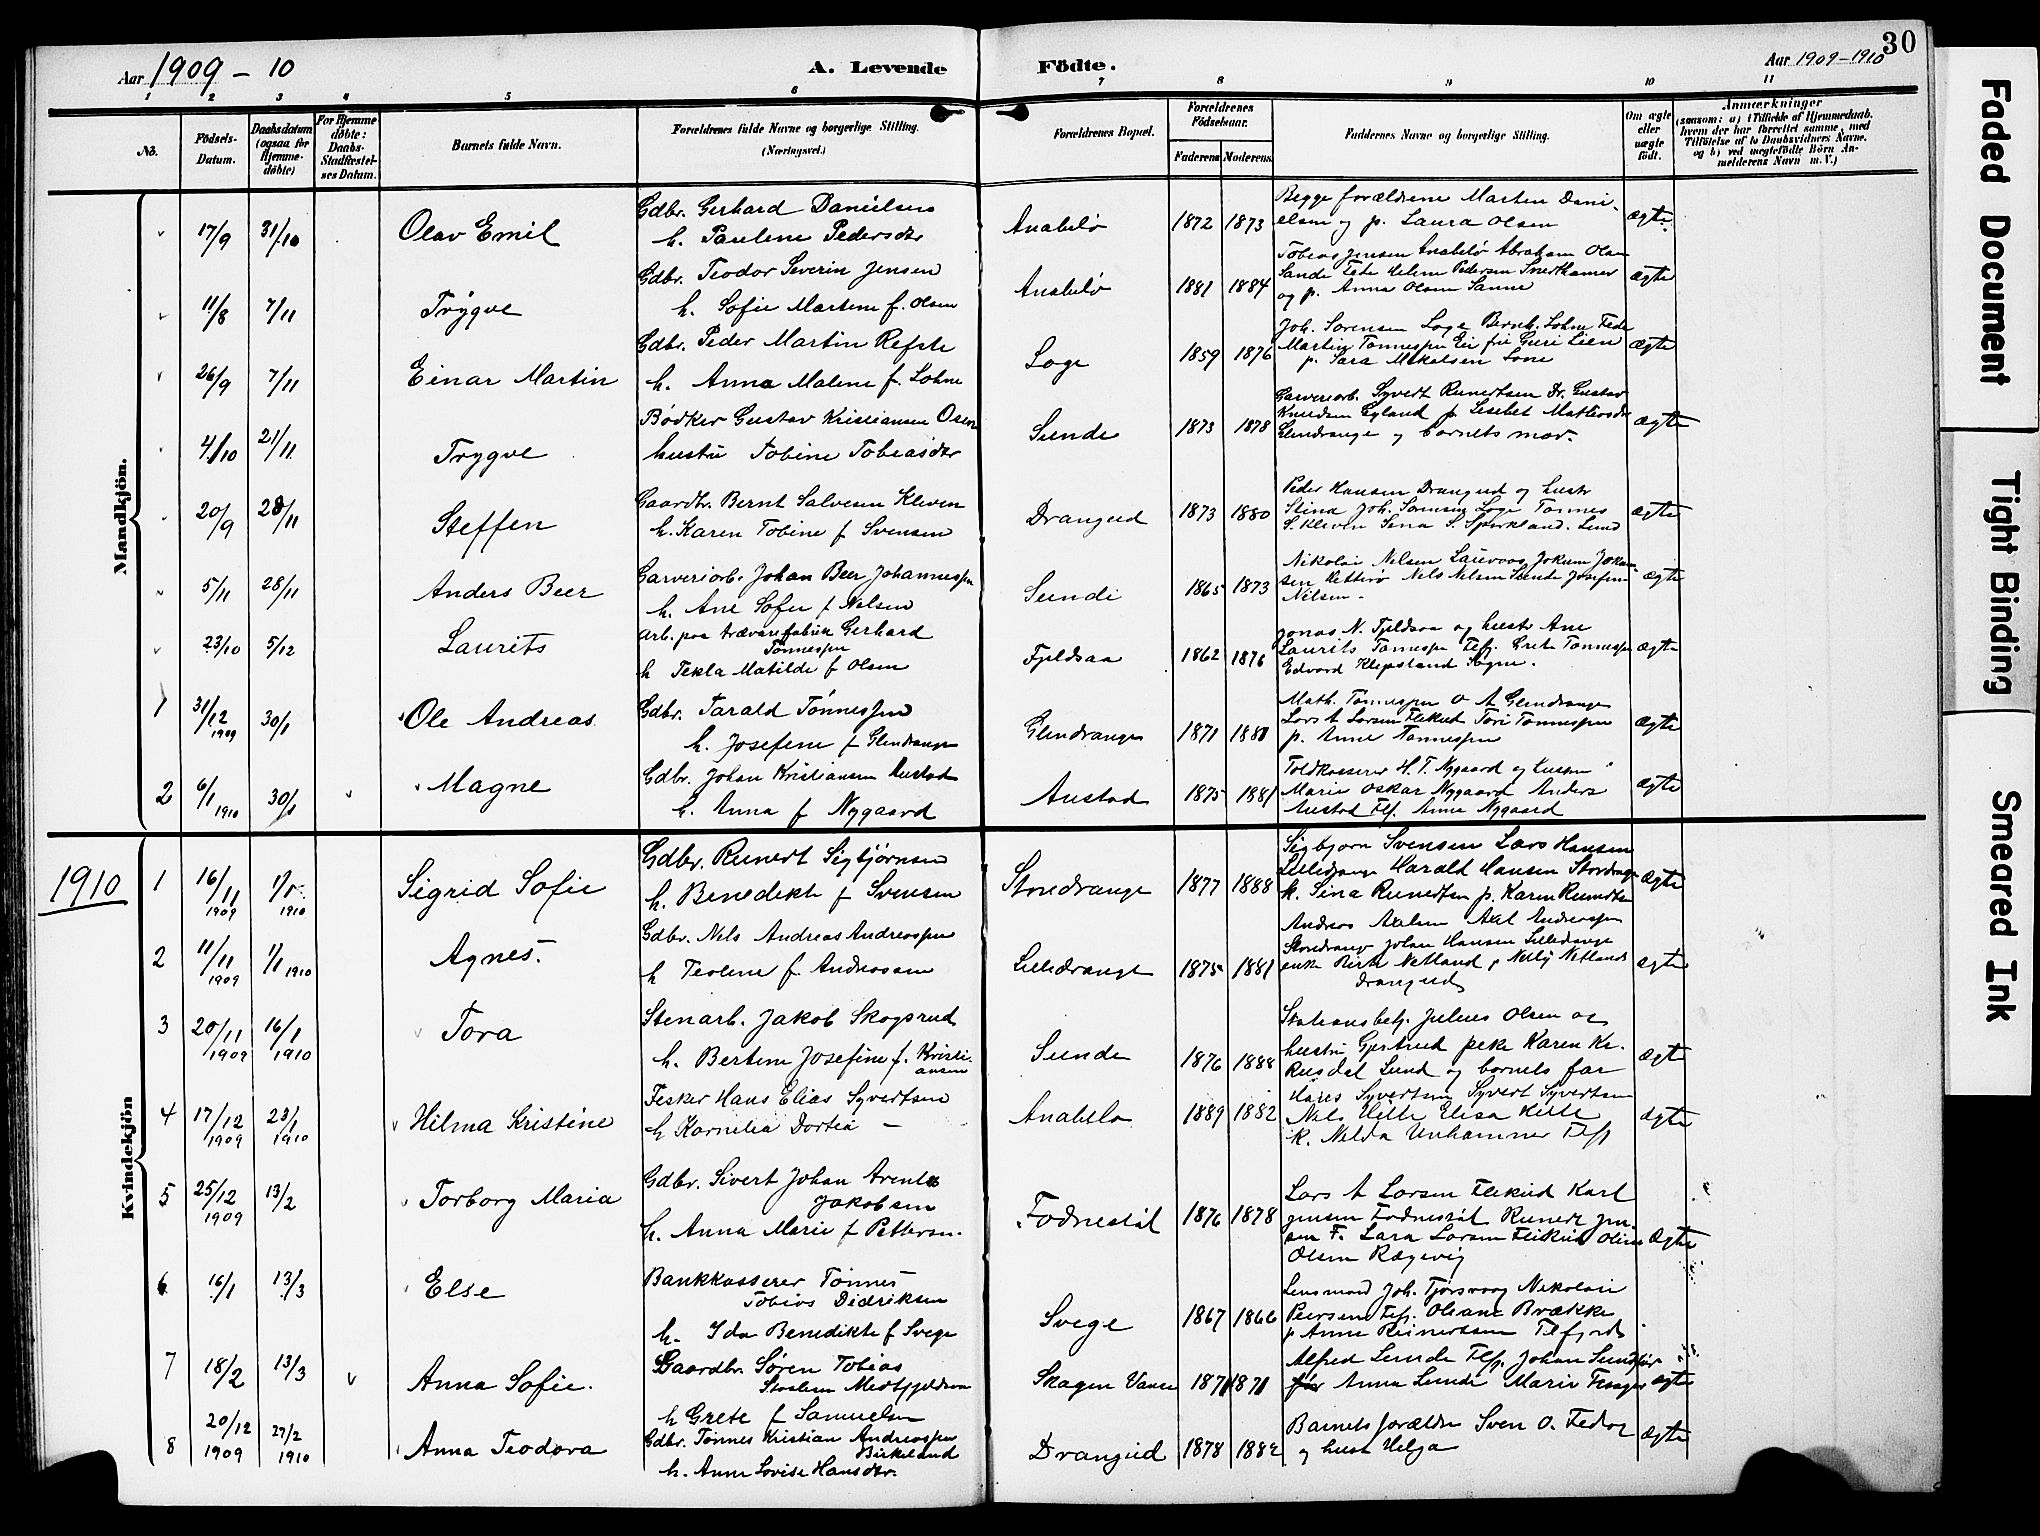 30
Aar 1909 – 10
A. Levende
Födte.
Aar 1909–1910
1 2 3 4 5 6 7 8 9 10 11
No.
Födsels-Datum.
Daabsdatum (ogsaa for Hjemme-døbte)
For Hjemme døbte: Daabs-Stadfæstelses Datum.
Barnets fulde Navn.
Forældrenes fulde Navne og borgerlige Stilling. (Næringsvei.)
Forældrenes Bopæl.
Forældrenes Födselsaar.
Faderens
Moderens
Faddernes Navne og borgerlige Stilling.
Om ægte eller uægte födt.
Anmærkninger (saasom: a) i Tilfælde af Hjemmedaab, hvem der har forrettet samme, med Tilföielse af to Daabsvidners Navne, og b) ved uægtefödte Börn Anmelderens Navn m. V.)
Mandkjön.
17/9 31/10 Olav Emil
Gdbr. Gerhard Danielsen
h. Pauline Pedersdtr
Anabelø 1872 1873
Begge forældrene Marten Dani-
elsen og p. Laura Olsen
ægte
11/8 7/11 Trygve
Gdbr. Teodor Severin Jensen
h. Sofie Martine f. Olsen
Anabelø 1881 1884
Tobias Jensen Anabelø Abraham Olsen
Sande Fede Helene Pedersen
og p. Anna Olsen Sande
ægte
26/9 7/11 Einar Martin
Gdbr. Peder Martin Refste
h. Anna Malene f. Lohne
Loge 1859 1876
Joh. Sorensen Loge Bernh. Lohne Fede
Martin Tonnespn Eie Guri Lien
p. Sara Mikelsen Lone
ægte
4/10 21/11 Trygve
Bødker Gustav Kristiansen Osen
hustru Tobine Tobiasdtr
Sunde 1873 1878
Garveriarb. Syvert Reinertsen Dr. Gustav
Knudsen Gyland p Lisebet
Glendrange og barnets mor.
ægte
20/9 28/11 Steffen
Gaardbr. Bernt Salvesen Kleven
h. Karen Tobine f Svensen
Drangeid 1873 1880
Peder Hansen Drangeid og hustr
Stina Joh. Samsing Loge Tonnes
S. Kleven Sina S. Lund
ægte
5/11 28/11 Anders Beer
Garveriarb. Johan Beer Johannespn
h. Ane Sofie f Nelsen
Sunde 1865 1873
Nikolai Nelsen Lauvaas Jokum Jokum-
sen Hitterø Nels Nelsen Sunde Josefine
Nelsen.
ægte
23/10 5/12 Laurits
Arb. paa trævarefabrik Gerhard
Tønnespn
h Tekla Matilde f Olsen
Fjeldsaa 1862 1876
Jonas N. Fjeldsaa og hustr Ane
Laurits Tonnespn Flfj. Grete Tonnespn
Edvard Klepsland Sogne.
ægte
1 31/12 1909 30/1 Ole Andreas.
Gdbr. Tarald Tønnespn
h. Josefine f Glendrange
Glendrange 1871 1881
Math. Tonnespn O A Glendrange
Lars A Larsen Flikeid Tori Tonnespn
p. Anne Tonnespn
ægte
2 6/1 1910 30/1 Magne
Gdbr. Johan Kristiansen Austad
h. Anna f Nygaard
Austad 1875 1881
Toldkasserer H. T. Nygaard og hustru
Marie Oskar Nygaard Anders
Austad Flf. Anne Nygaard
ægte
1910
Kvindekjön
1 16/11 1909 1/1 1910 Sigrid Sofie
Gdbr. Reinert Sigbjørnsen
h. Benedikte f Svensen
Storedrange 1877 1888
Sigbjorn Svensen Lars Hansen
Lilledrange Harald Hansen Stordrange
k. Sina Reinertsen p. Karen Reinertsen
ægte
2 11/11 1909 1/1 1910 Agnes.
Gdbr. Nils Andreas Andreaspn
h Teoline f Andreassen
Lilledrange 1875 1881
Andreas Axelsen Axel Andreaspn
Stordrange Johan Hansen Lilledrange
enke Netland p Nelly Netland
Drangeid
ægte
3 20/11 1909 16/1 1910 Tora
Stenarb. Jakob Skogsrud
h. Bertine Josefine f. Kristi-
ansen
Sunde 1876 1888
Stationsbetj. Julius Olsen og
hustru Gjertrud peke Karen Kr.
Rusdal Lund og barnets far
ægte
4 17/12 1909 23/1 1910 Hilma Kristine
Fisker Hans Elias Syvertsen
h Kornelia Dortea –
Anabelø 1889 1882
Hans Syvertsen Syvert Syvertsen
Nils Hille Elisa Hille
k. Nelda Unhammer Flfj
ægte
5 25/12 1909 13/2 Torborg Maria
Gdbr. Sivert Johan Arents
Jakobsen
h. Anna Marie f Pettersen.
Fodnestøl 1876 1878
Lars A Larsen Flikeid Karl
Jensen Fodnestøl Reinert Jen-
sen F. Lara Larsen Flikeid Oline
Olsen Rægevig
Ægte
6 16/1 13/3 Else
Bankkasserer Tønnes
Tobias Didriksen
h. Ida Benedikte f Svege
Svege 1867 1866
Lensmand Joh. Tjørsvaag Nikolai
Peersen Flfj. Oleane Brække
p Anne Reinertsen Flfjord
7 18/2 13/3 Anna Sofie.
Gaardbr. Søren Tobias
Staalesen Midtfjeldsaa
h Grete f Samuelsen
Skagen Vanse 1871 1871
Alfred Sunde Flfj. Johan Sundfør
Anna Sunde Marie
ægte
8 20/12 1909 27/2 1910 Anna Teodora
Gdbr. Tønnes Kristian Andreaspn
Birkeland
h. Anne Lovise Hansdtr.
Drangeid 1878 1882
Barnets forældre Sven O. Fedog
og hust Helga
ægte
Faded Document
Tight Binding
Smeared Ink